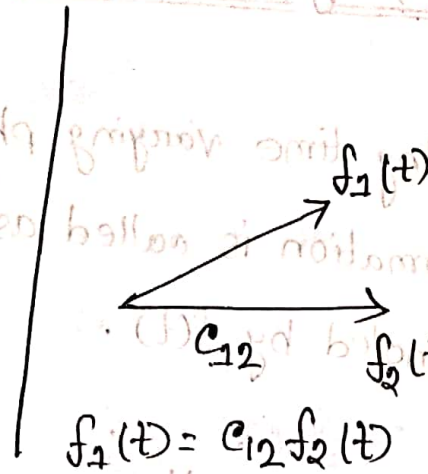 f₁(t)
C₁₂
f₂(
f₁(t) = C₁₂ f₂(t)